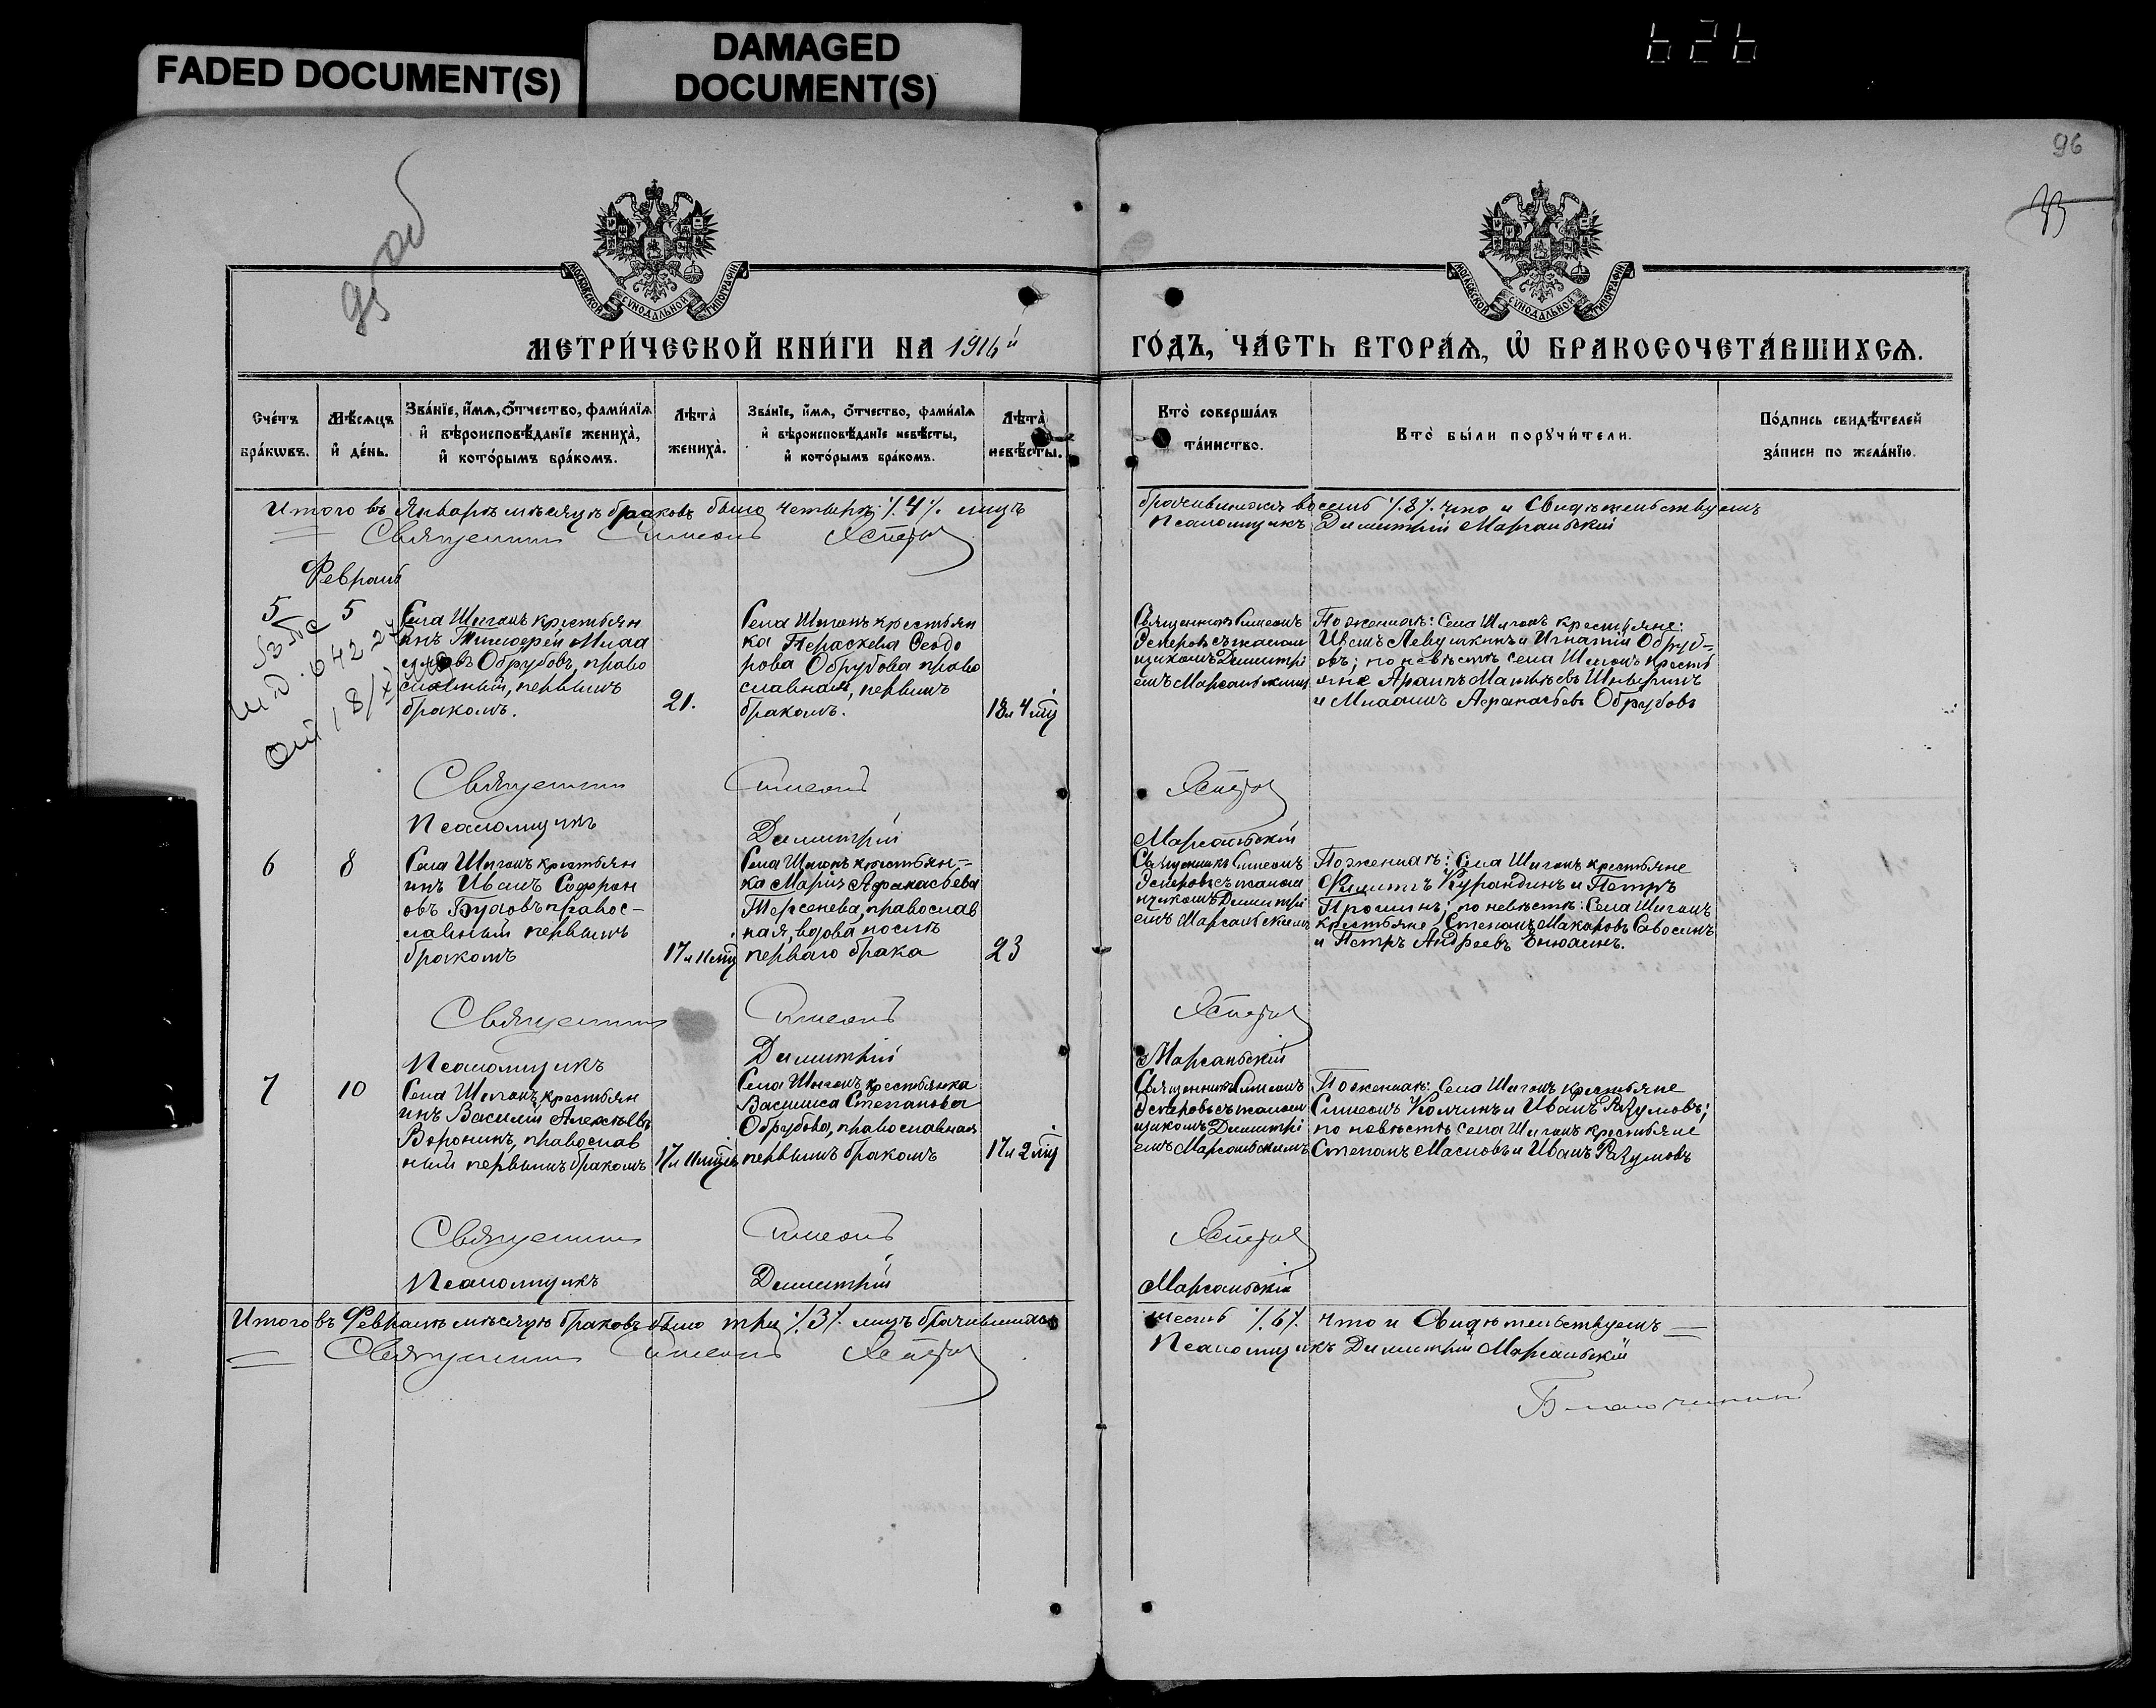 FADED DOCUMENT(S)
DAMAGED
DOCUMENT(S)
626
96
95 об
33
МОСКОВСКОЙ СѴНОДАЛЬНОЙ ТИПОГРАФІИ
МОСКОВСКОЙ СѴНОДАЛЬНОЙ ТИПОГРАФІИ
МЕТРИ́ЧЕСКОЙ КНИ́ГИ НА 1916й
ГО́ДЪ, ЧА́СТЬ ВТОРА́Ѧ, Ѽ БРАКОСОЧЕТА́ВШИХСѦ.
Сче́тъ
бра́кѡвъ.
Мѣ́сѧцъ
и҆ де́нь.
Зва́нїе, и҆́мѧ, ѻ҆́тчество, фами́лїѧ
и҆ вѣроисповѣ́данїе жениха̀,
и҆ кото́рымъ бра́комъ.
Лѣта̀
жениха̀.
Зва́нїе, и҆́мѧ, ѻ҆́тчество, фами́лїѧ
и҆ вѣроисповѣ́данїе невѣ́сты,
и҆ кото́рымъ бра́комъ.
Лѣта̀
невѣ́сты.
Кто̀ соверша́лъ
та́инство.
Кто̀ бы́ли порꙋчи́тели.
По́дпись свидѣ́телей
за́писи по жела́нїю.
Итого въ Январѣ мѣсяцѣ браковъ было четыре ·/.4·/. лицъ
брачившихся восемь ·/.8·/. что и свидѣтельствуемъ
Священникъ Симеонъ Эсперовъ
Псаломщикъ Димитрій Марсальскій
Февраль
5
5
Села Шиганъ крестьян
инъ Тимофей
Обрубовъ, право
славный, первымъ
бракомъ.
21.
Села Шиганъ крестьян
ка Параскева Ѳеодо
рова Обрубова право
славная, первымъ
бракомъ.
18 л 4 мц
Священникъ Симеонъ
Эсперовъ съ псалом
щикомъ Димитрі
емъ Марсальскимъ
По женихѣ: Села Шиганъ крестьяне:
Иванъ Левушкинъ и Игнатій Обруб-
овъ; по невѣстѣ села Шиганъ кресть
яне Матвѣевъ
и Афанасьевъ Обрубовъ
Священникъ Симеонъ Эсперовъ
Псаломщикъ Димитрій Марсальскій
6
8
Села Шиганъ крестьян
инъ Иванъ Софрон
овъ правос-
лавный первымъ
бракомъ
17 л 11 мц
Села Шиганъ крестьян-
ка Марія Афанасьева
Терсенева, православ
ная, вдова послѣ
перваго брака
23
Священникъ Симеонъ
Эсперовъ съ псалом
щикомъ Димитрі
емъ Марсальскимъ
По женихѣ: Села Шиганъ крестьяне
Филиппъ Курандинъ и Петръ
Прошинъ; по невѣстѣ: Села Шиганъ
крестьяне Степанъ Макаровъ Савосинъ
и Петръ Андреевъ
Священникъ Симеонъ Эсперовъ
Псаломщикъ Димитрій Марсальскій
7
10
Села Шиганъ крестьян
инъ Василій Алексѣевъ
Воронинъ, православ
ный первымъ бракомъ
17 л 11 мцев
Села Шиганъ крестьянка
Василиса Степанова
Обрубова, православная
первымъ бракомъ
17 л 2 мц
Священникъ Симеонъ
Эсперовъ съ псалом
щикомъ Димитрі
емъ Марсальскимъ
По женихѣ: Села Шиганъ крестьяне
Симеонъ Комчинъ и Иванъ Разумовъ;
по невѣстѣ села Шиганъ крестьяне
Степанъ Масловъ и Иванъ Разумовъ
Священникъ Симеонъ Эсперовъ
Псаломщикъ Димитрій Марсальскій
Итого въ Февралѣ мѣсяцѣ браковъ было три ·/.3·/. лицъ брачившихся
шесть ·/.6·/. что и свидѣтельствуемъ
Священникъ Симеонъ Эсперовъ
Псаломщикъ Димитрій Марсальскій
Благочинный